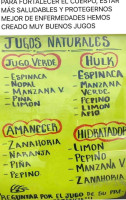 PARA FORTALECER EL CUERPO, ESTAR
MÁS SALUDABLES Y PROTEGERNOS
MEJOR DE ENFERMEDADES HEMOS
CREADO MUY BUENOS JUGOS
JUGOS NATURALES
JUGO VERDE
- ESPINACA
- NOPAL
- MANZANA V
- PIÑA
- LIMON
HULK
- ESPINACA
- MANZANA
VERDE
- PEPINO
- LIMON
- APIO
AMANECER
- ZANAHORIA
- NARANJA
- PIÑA
- PEPINO
HIDRATADOR
- LIMON
- PEPINO
- MANZANA V
- ZANAHORIA
PREGUNTAR POR EL JUGO DE SU